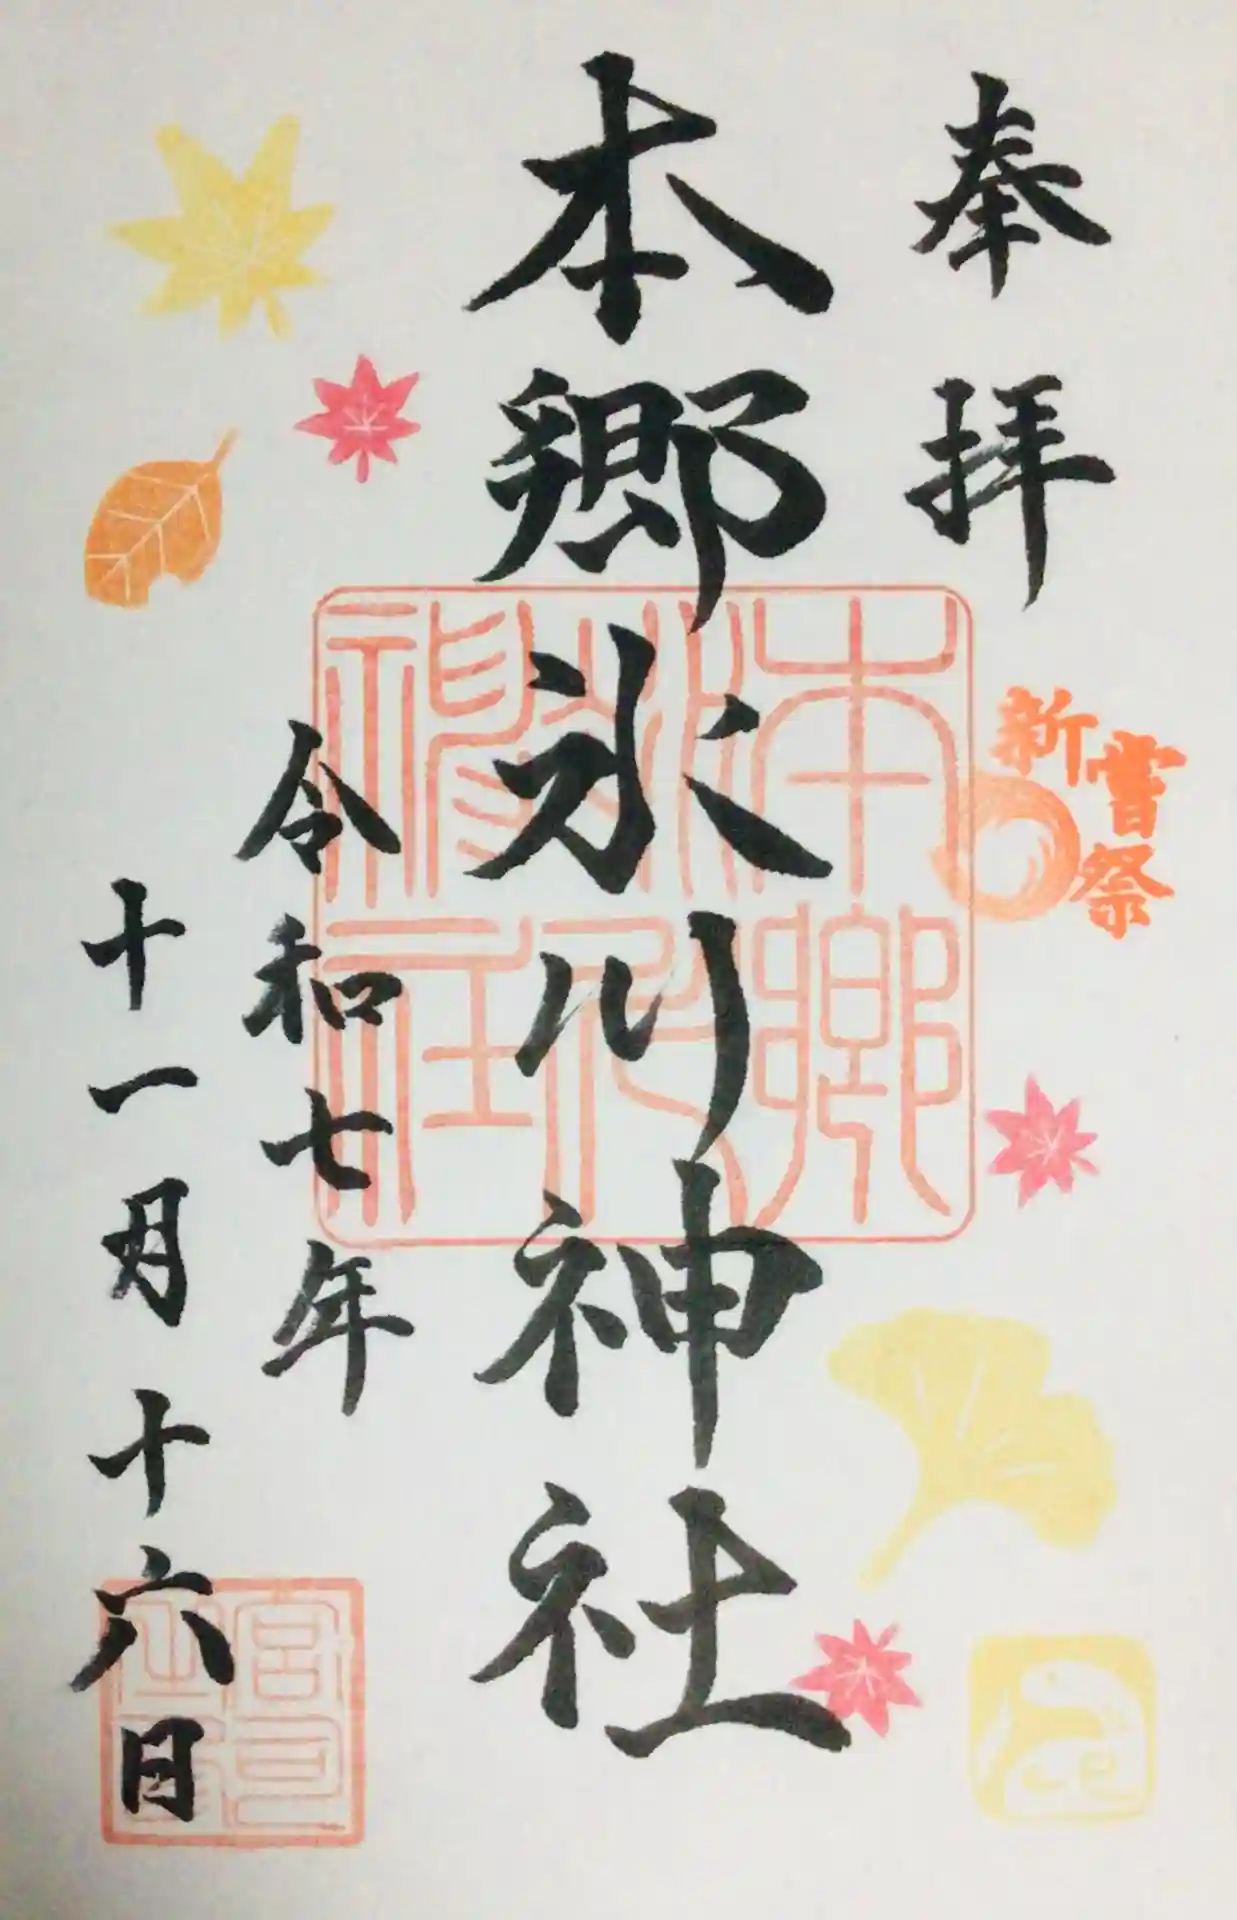 奉拝
新嘗祭
本郷氷川神社
本郷氷川神社
令和七年
十一月十六日
巳